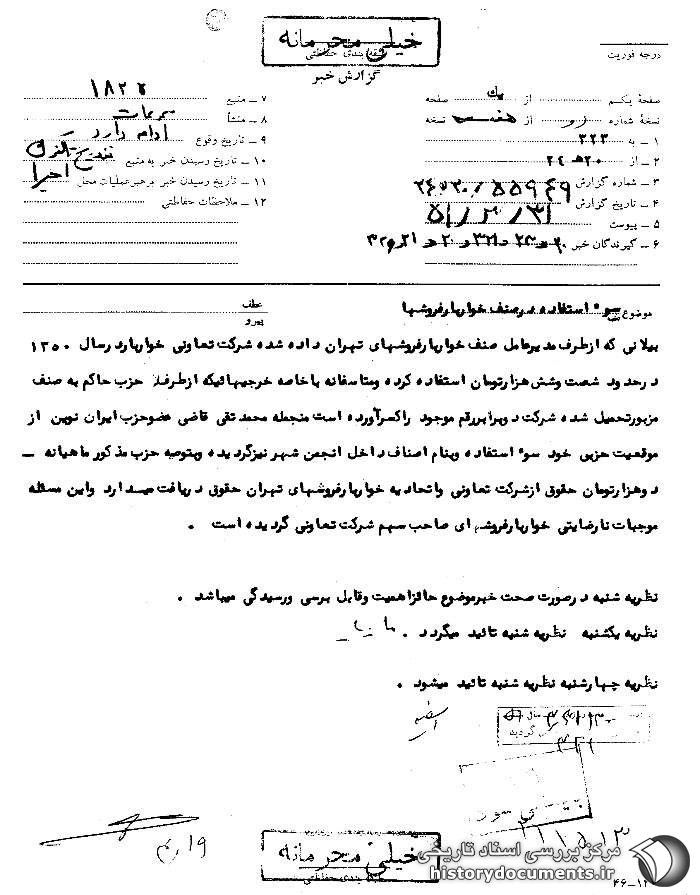 خیلی محرمانه
طبقه بندی حفاظتی
گزارش خبر
درجه فوریت
صفحهٔ یکم از یک صفحه
نسخهٔ شماره از هفت نسخه
۱ ـ به ۳۲۲
۲ ـ از ۲۰ هـ ۲۴
۳ ـ شماره گزارش ۵۵۹۴۹/۲۰ هـ ۲۴
۴ ـ تاریخ گزارش ۵۱/۲/۳۱
۵ ـ پیوست
۶ ـ گیرندگان خبر
۷ ـ منبع ۱۸۲۲
۸ ـ منشأ
۹ ـ تاریخ وقوع ادامه دارد
۱۰ ـ تاریخ رسیدن خبر به منبع
۱۱ ـ تاریخ رسیدن خبر برهبر عملیات محل
۱۲ ـ ملاحظات حفاظتی
موضوع سوء استفاده در صنف خواربارفروشها
عطف
پیرو
بیلانی که ازطرف مدیرعامل صنف خواربارفروشهای تهران داده شده شرکت تعاونی خواربار در سال ۱۳۵۰
در حدود شصت وشش هزارتومان استفاده کرده ومتاسفانه باخاصه خرجیهائیکه ازطرف حزب حاکم به صنف
مزبور تحمیل شده شرکت دوبرابر رقم موجود را کسر آورده است منجمله محمد تقی قاضی عضوحزب ایران نوین از
موقعیت حزبی خود سوء استفاده وبنام اصناف داخل انجمن شهر نیزگردیده وبتوصیه حزب مذکور ماهیانه ـ
دوهزارتومان حقوق ازشرکت تعاونی واتحادیه خواربارفروشهای تهران حقوق دریافت میدارد واین مسئله
موجبات نارضایتی خواربارفروشهای صاحب سهم شرکت تعاونی گردیده است .
نظریه شنبه درصورت صحت خبرموضوع حائزاهمیت وقابل برسی ورسیدگی میباشد .
نظریه یکشنبه نظریه شنبه تائید میگردد .
نظریه چهارشنبه نظریه شنبه تائید میشود .
خیلی محرمانه
طبقه بندی حفاظتی
مرکز بررسی اسناد تاریخی
historydocuments.ir